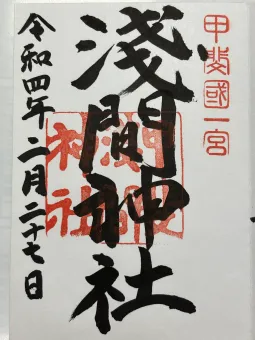 甲斐國一宮
淺間神社
淺間
神社
令和四年二月二十七日